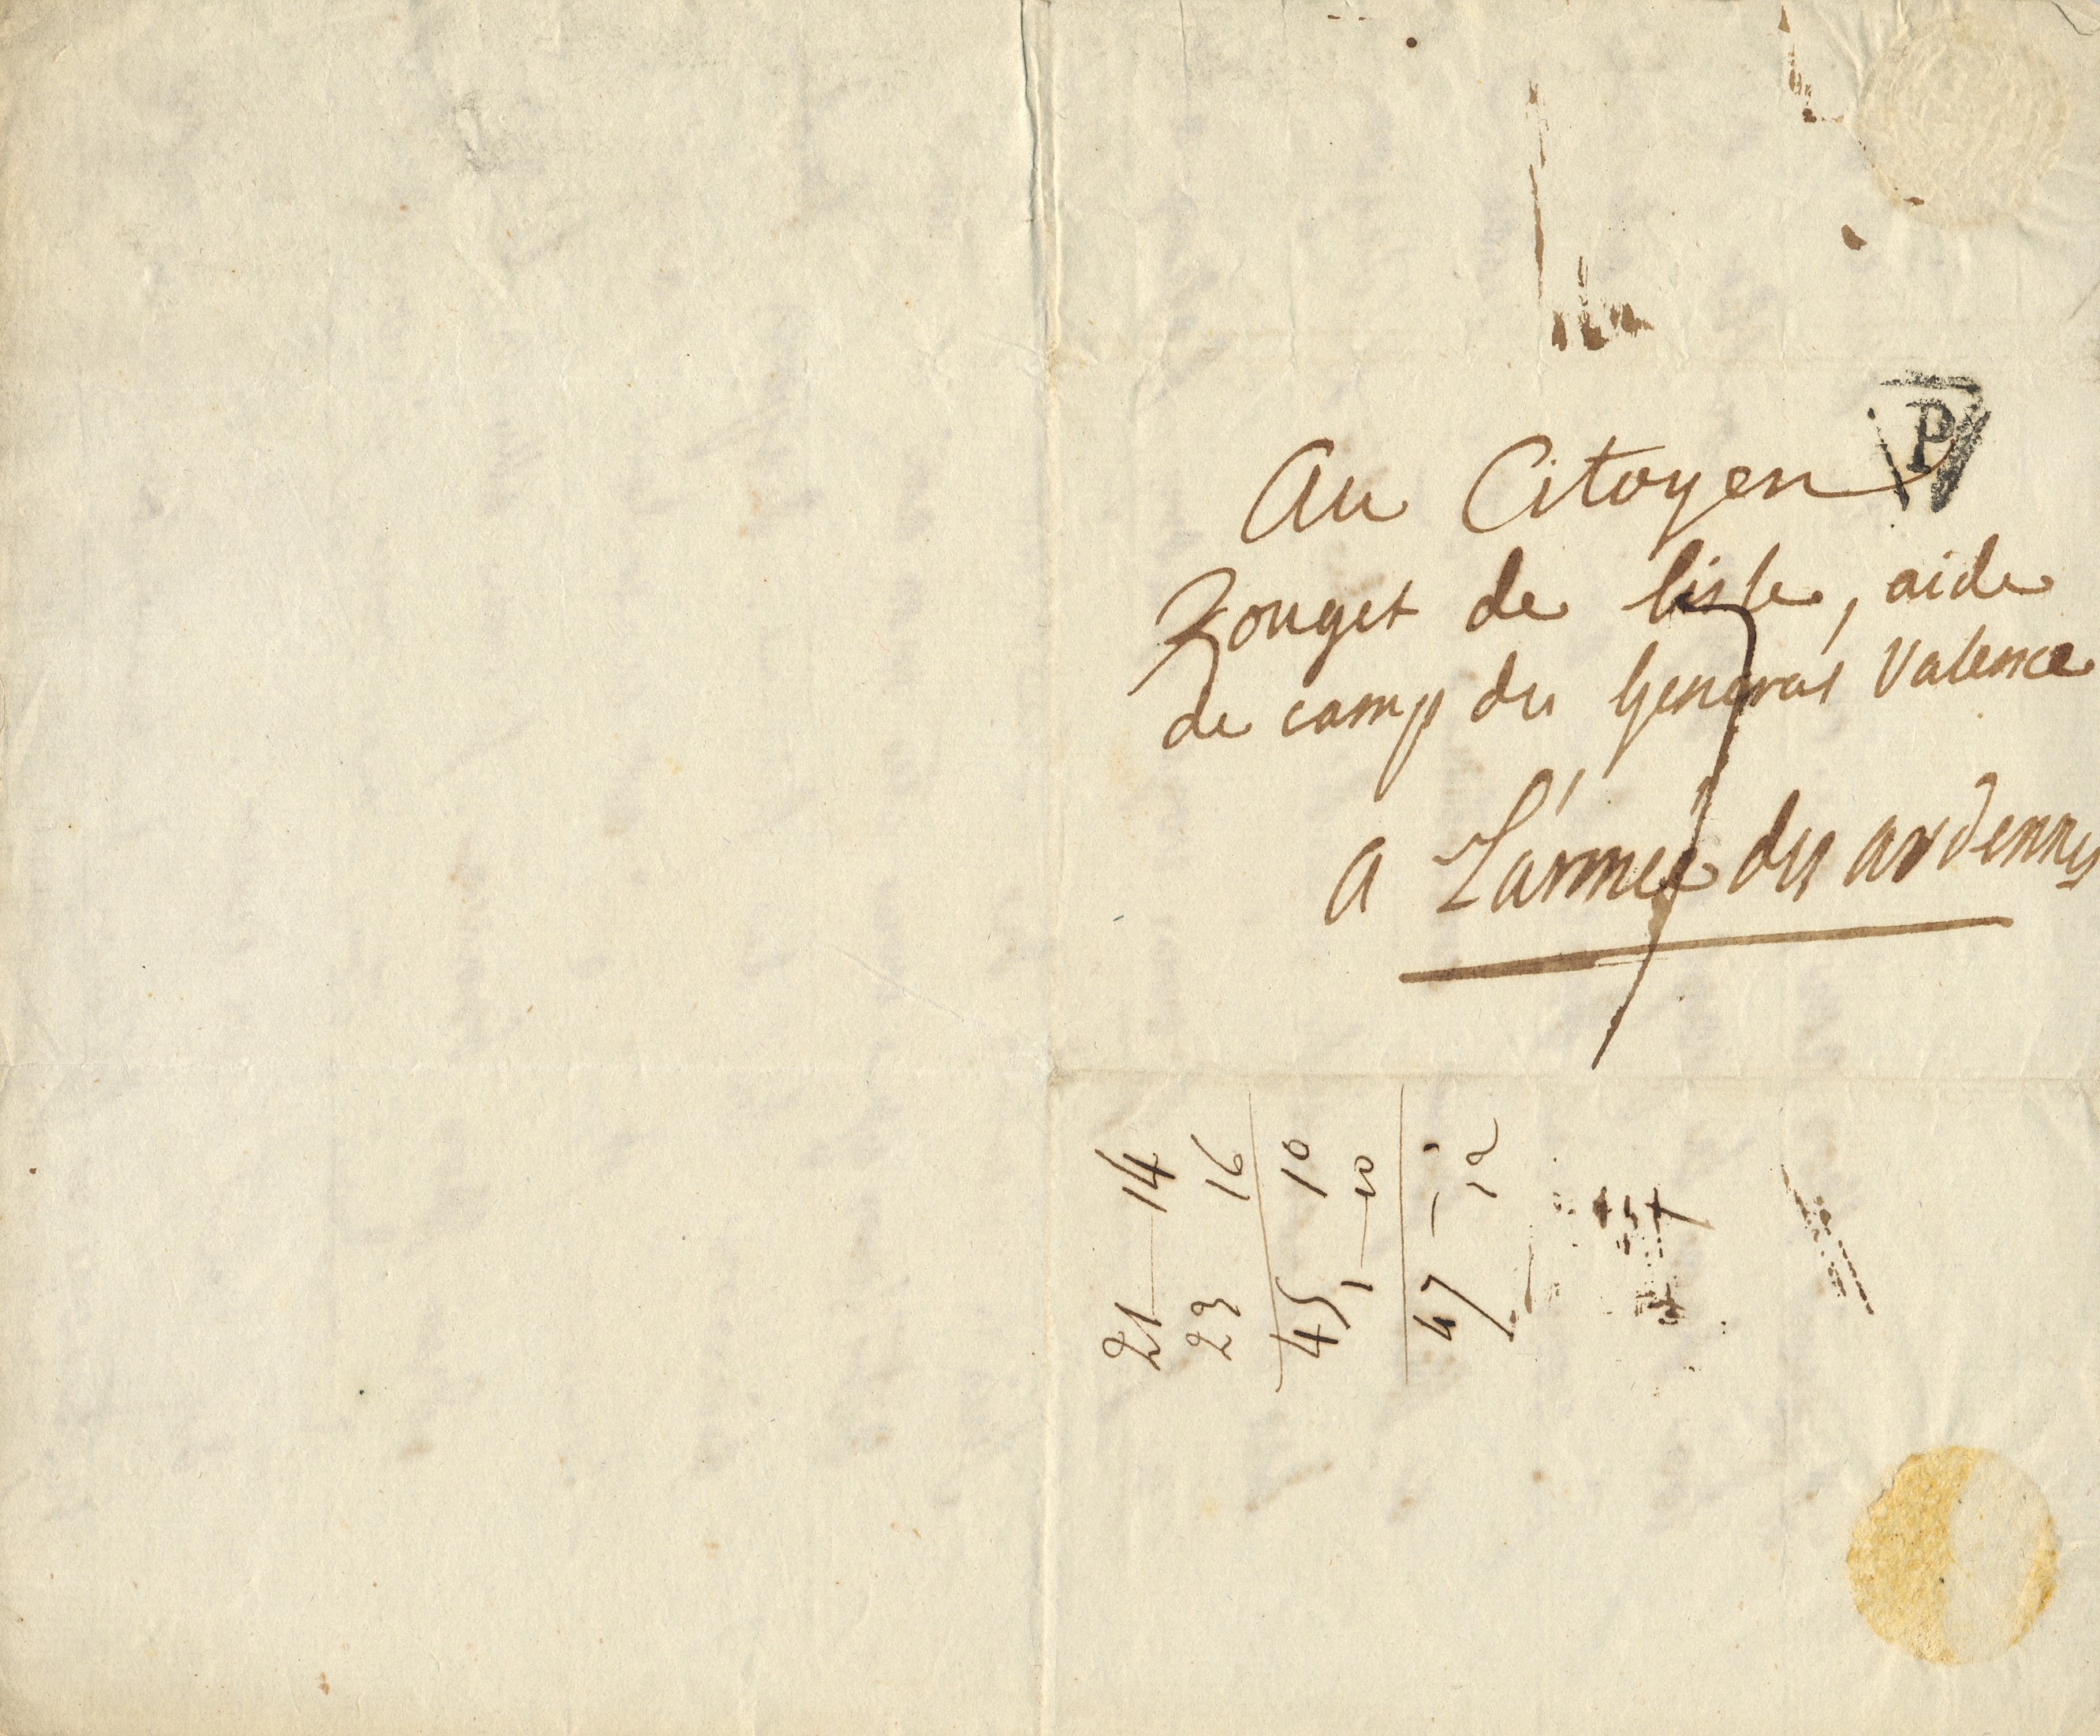 P
Au Citoyen
Rouget de lisle, aide
de camp du General Valence
a L'armée des ardennes
7
21 — 14
23 16
45 10
1 — 10
47 — "
12